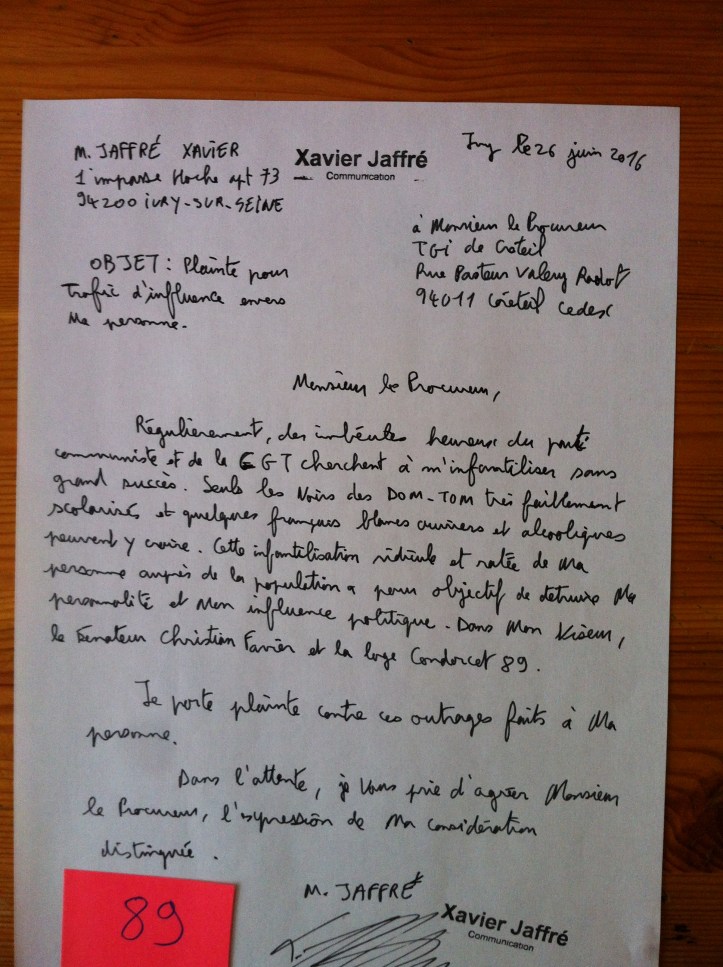 M. JAFFRÉ XAVIER
1 impasse Hoche apt 73
94200 iVRY-SUR-SEINE
Xavier Jaffré
Communication
Ivry le 26 juin 2016
à Monsieur le Procureur
TGi de Créteil
Rue Pasteur Valery Radot
94011 Créteil Cedex
OBJET : Plainte pour
Trafic d'influence envers
Ma personne.
Monsieur le Procureur,
Régulièrement, des imbéciles heureux du parti
communiste et de la CGT cherchent à m'infantiliser sans
grand succès. Seuls les Noirs des DOM-TOM très faiblement
scolarisés et quelques français blancs ouvriers et alcooliques
peuvent y croire. Cette infantilisation ridicule et ratée de Ma
personne auprès de la population a pour objectif de detruire Ma
personnalité et Mon influence politique. Dans Mon viseur,
le Senateur Christian Favier et la loge Condorcet 89.
Je porte plainte contre ces outrages faits à Ma
personne.
Dans l'attente, je Vous prie d'agréer Monsieur
le Procureur, l'expression de Ma considération
distinguée.
M. JAFFRÉ
Xavier Jaffré
Communication
89